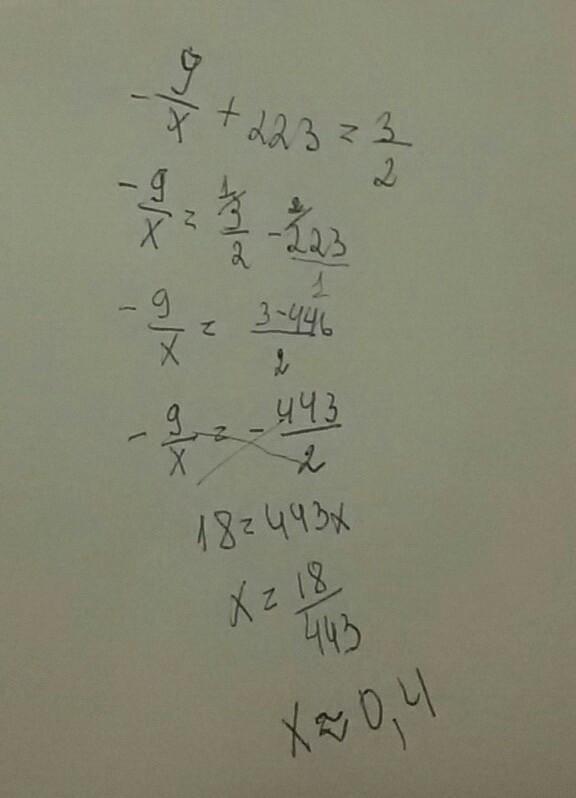 -9/x + 223 = 3/2
-9/x = 3/2 ^1 - 223/1 ^2
-9/x = 3-446/2
-9/x = -443/2
18=443x
x=18/443
x≈0,4